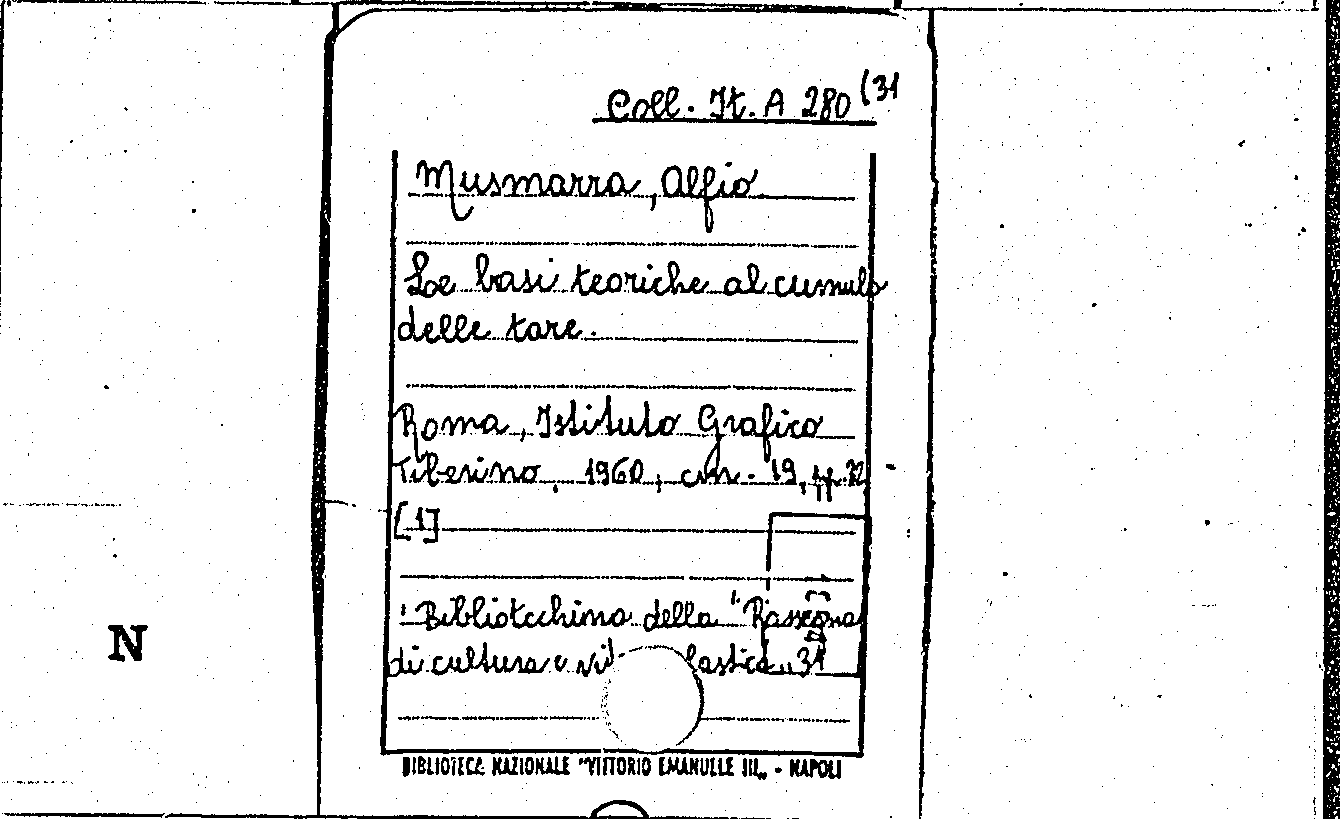 Coll. It. A 280 (31
Musmarra, Alfio
Le basi teoriche al cumulo
delle tare.
Roma, Istituto Grafico
Tiberino, 1960, cm. 19, pp. 32
[1]
Bibliotechina della "Rassegna
di cultura e vi lastica„ 31
N
BIBLIOTECA NAZIONALE "VITTORIO EMANUELE III„ - NAPOLI